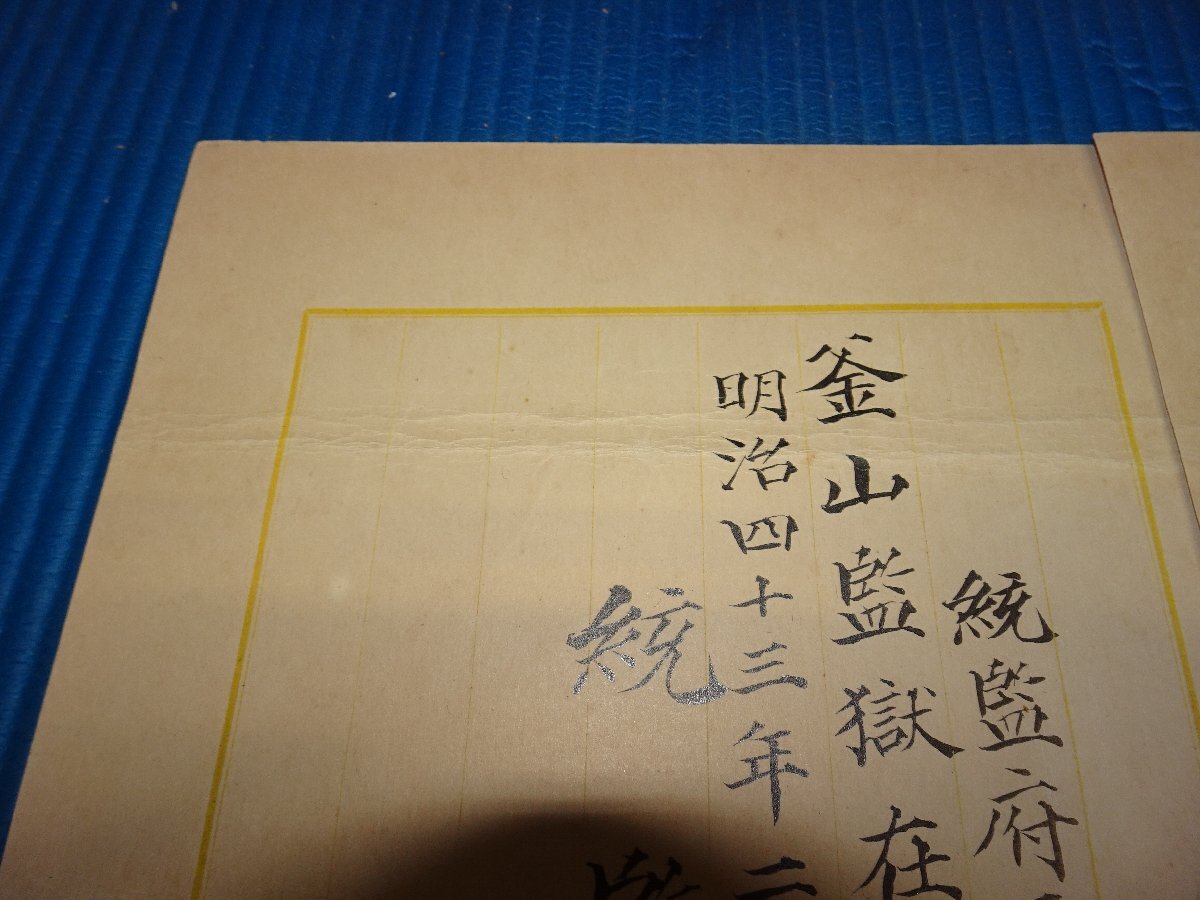 統監府
釜山監獄在
明治四十三年二
統監